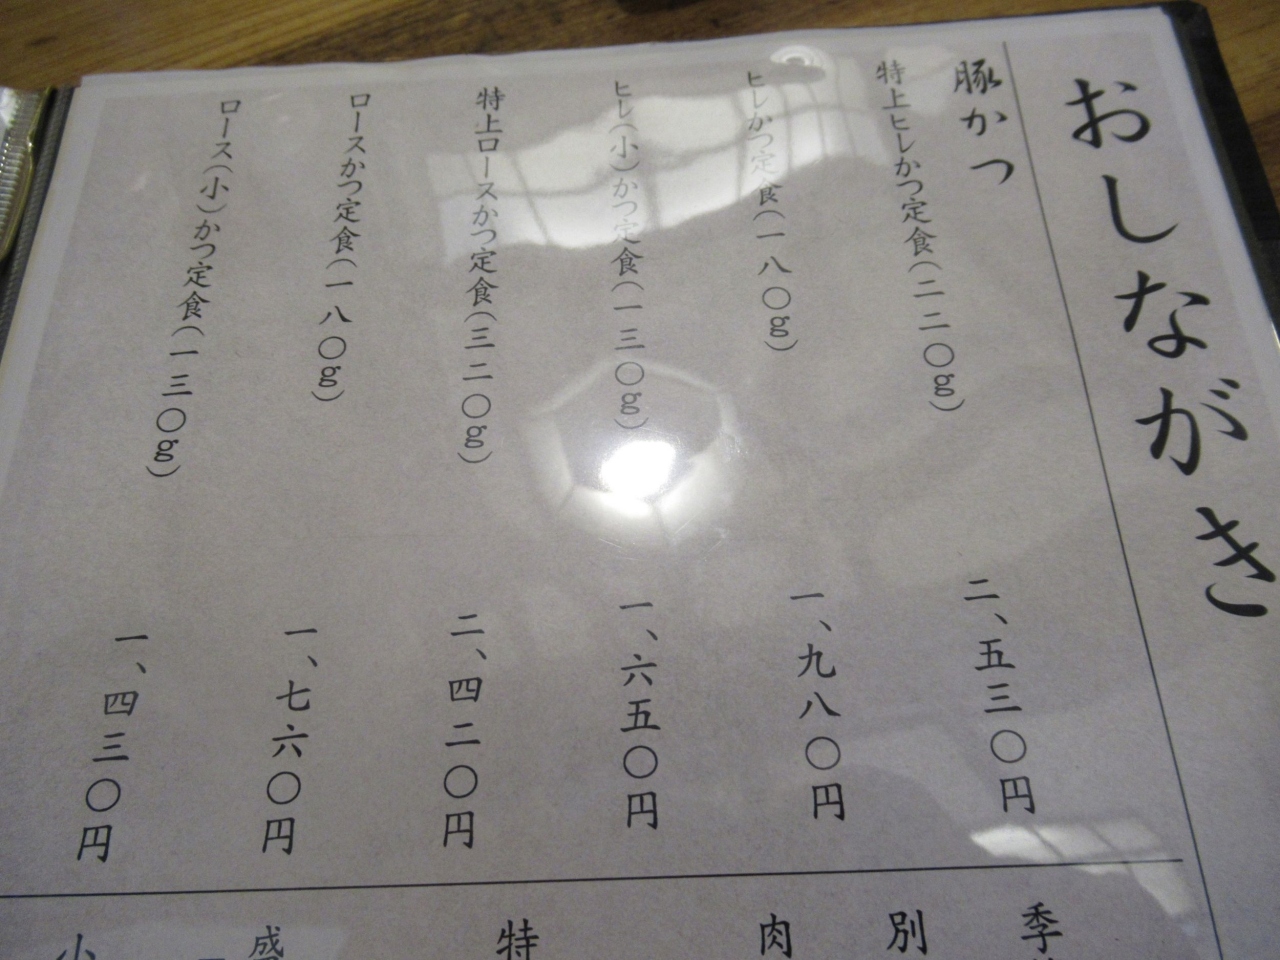 おしながき
豚かつ
特上ヒレかつ定食(二二〇g)
二、五三〇円
ヒレかつ定食(一八〇g)
一、九八〇円
ヒレ(小)かつ定食(一三〇g)
一、六五〇円
特上ロースかつ定食(三二〇g)
二、四二〇円
ロースかつ定食(一八〇g)
一、七六〇円
ロース(小)かつ定食(一三〇g)
一、四三〇円
季
別
肉
特
盛
小